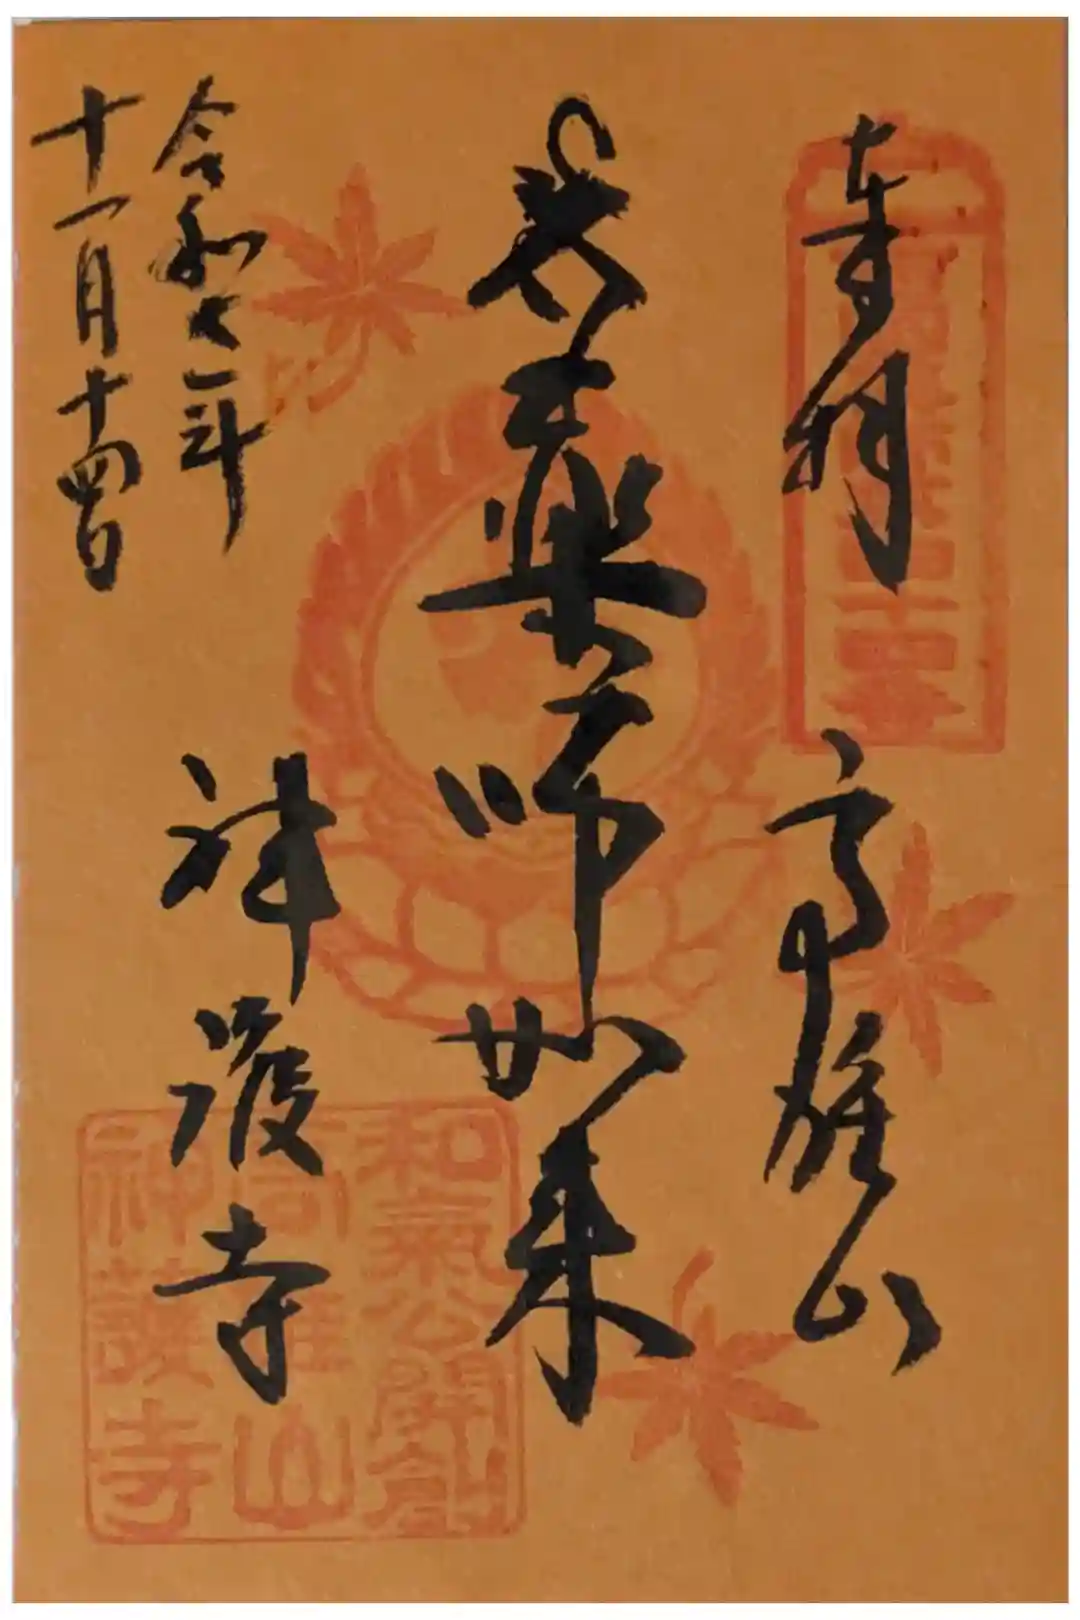 奉拝 高雄山
薬師如来
神護寺
令和七年
十一月十四日
和氣公開創
高雄山
神護寺